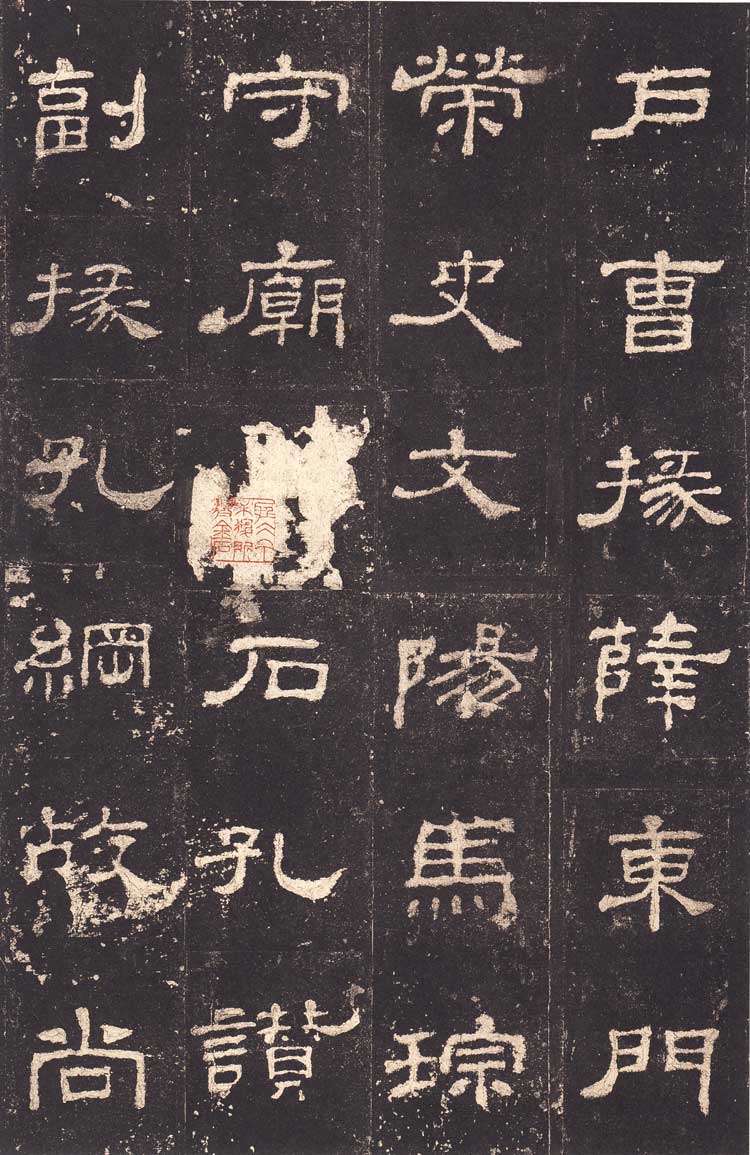 戶曹掾薛東門
榮史文陽馬琮
守廟石孔讃
副掾孔綱故尚